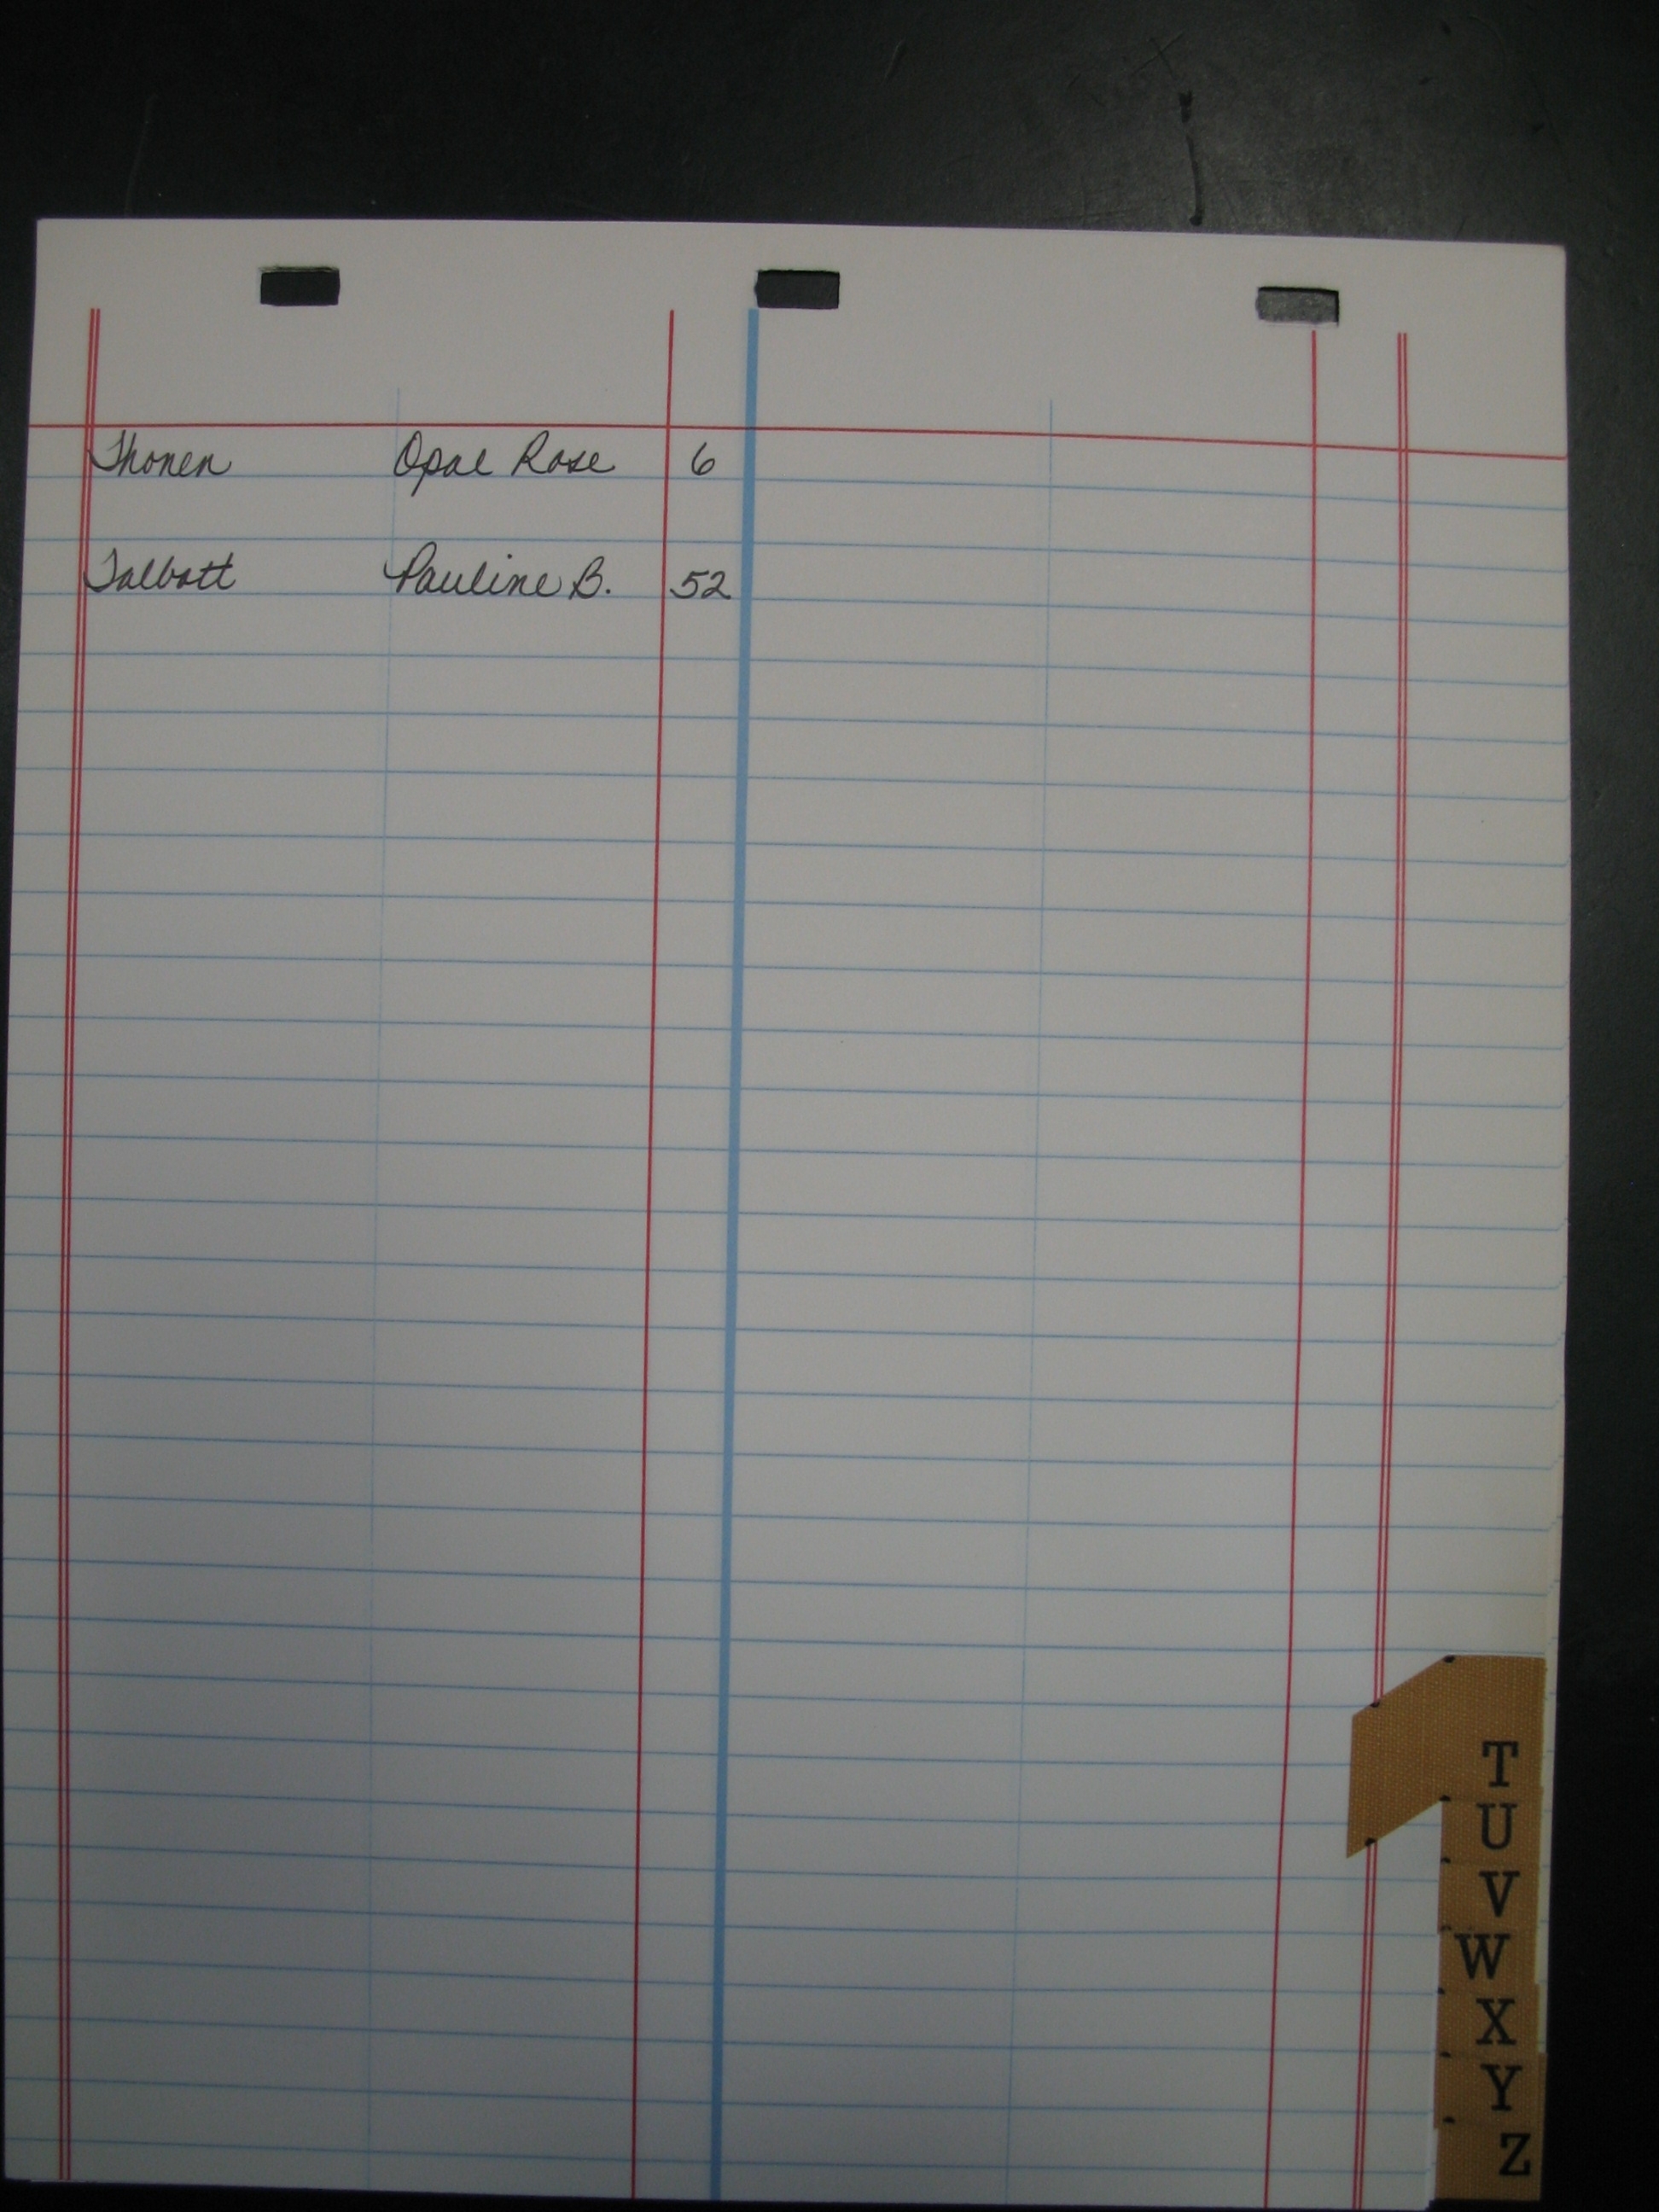 Thonen Opal Rose 6
Talbott Pauline B. 52
T
U
V
W
X
Y
Z